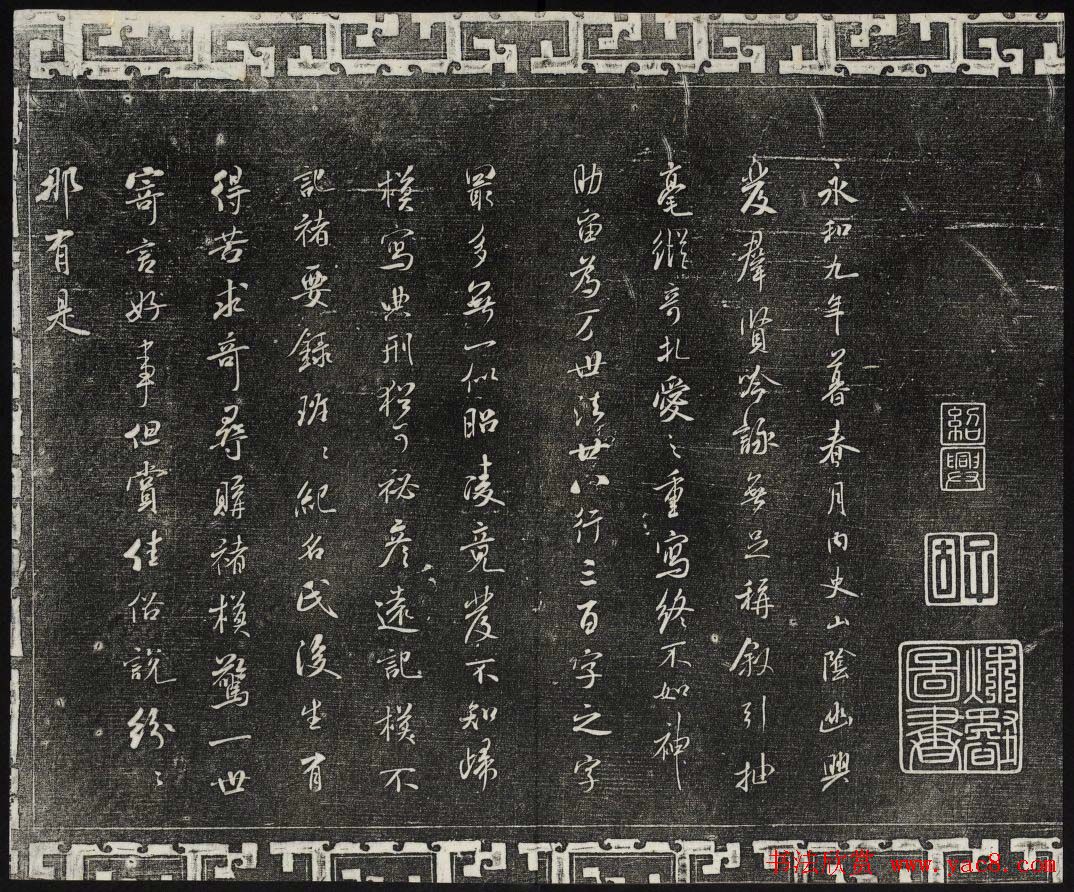 紹興
圖書
永和九年暮春月内史山陰幽興
發羣賢吟詠無足稱叙引抽
毫縱奇札愛之重寫終不如神
助留為万世法廿八行三百字之字
最多無一似昭陵竟發不知歸
模寫典刑猶可祕彥遠記模不
記褚要錄班〻紀名氏後生有
得苦求奇尋購褚模驚一世
寄言好事但賞佳俗說紛〻
那有是
书法欣赏 www.yac8.com